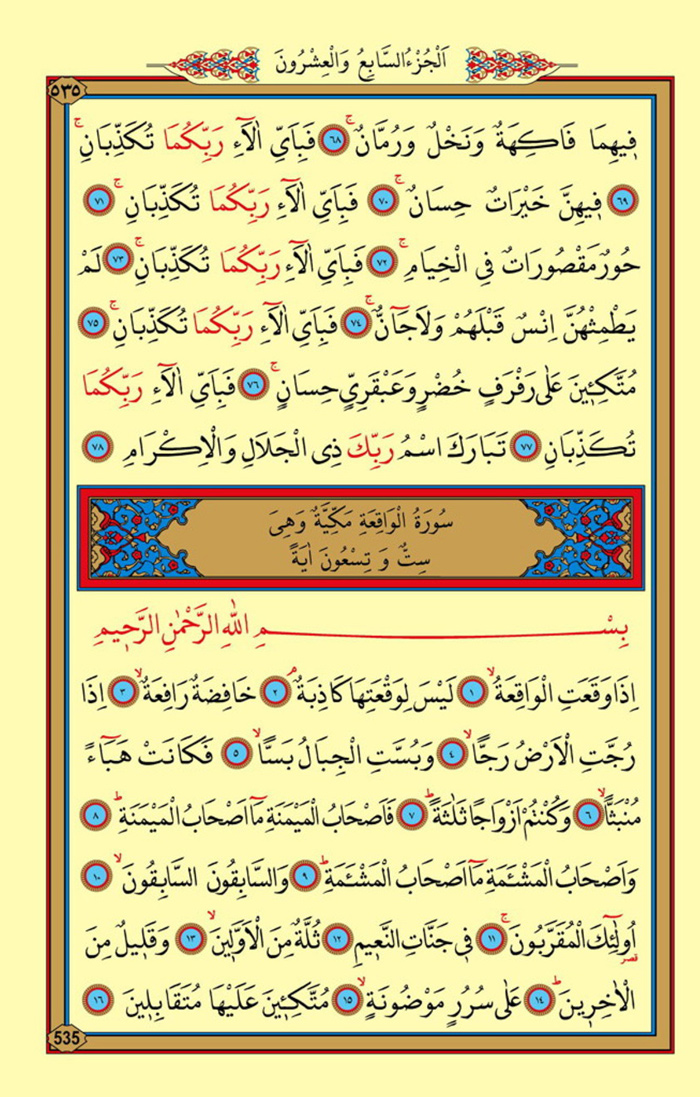 اَلْجُزْءُ السَّابِعُ وَالْعِشْرُونَ
٥٣٥
فٖيهِمَا فَاكِهَةٌ وَنَخْلٌ وَرُمَّانٌۚ ﴿٦٨﴾ فَبِاَيِّ اٰلَٓاءِ رَبِّكُمَا تُكَذِّبَانِۚ
﴿٦٩﴾ فٖيهِنَّ خَيْرَاتٌ حِسَانٌۚ ﴿٧٠﴾ فَبِاَيِّ اٰلَٓاءِ رَبِّكُمَا تُكَذِّبَانِۚ ﴿٧١﴾
حُورٌ مَقْصُورَاتٌ فِي الْخِيَامِۚ ﴿٧٢﴾ فَبِاَيِّ اٰلَٓاءِ رَبِّكُمَا تُكَذِّبَانِۚ ﴿٧٣﴾ لَمْ
يَطْمِثْهُنَّ اِنْسٌ قَبْلَهُمْ وَلَا جَٓانٌّۚ ﴿٧٤﴾ فَبِاَيِّ اٰلَٓاءِ رَبِّكُمَا تُكَذِّبَانِۚ ﴿٧٥﴾
مُتَّكِـٖٔينَ عَلٰى رَفْرَفٍ خُضْرٍ وَعَبْقَرِيٍّ حِسَانٍۚ ﴿٧٦﴾ فَبِاَيِّ اٰلَٓاءِ رَبِّكُمَا
تُكَذِّبَانِ ﴿٧٧﴾ تَبَارَكَ اسْمُ رَبِّكَ ذِي الْجَلَالِ وَالْاِكْرَامِ ﴿٧٨﴾
سُورَةُ الْوَاقِعَةِ مَكِّيَّةٌ وَهِىَ
سِتٌّ وَ تِسْعُونَ اٰيَةً
بِسْمِ اللّٰهِ الرَّحْمٰنِ الرَّحٖيمِ
اِذَا وَقَعَتِ الْوَاقِعَةُۙ ﴿١﴾ لَيْسَ لِوَقْعَتِهَا كَاذِبَةٌۢ ﴿٢﴾ خَافِضَةٌ رَافِعَةٌۙ ﴿٣﴾ اِذَا
رُجَّتِ الْاَرْضُ رَجًّاۙ ﴿٤﴾ وَبُسَّتِ الْجِبَالُ بَسًّاۙ ﴿٥﴾ فَكَانَتْ هَبَٓاءً
مُنْبَثًّاۙ ﴿٦﴾ وَكُنْتُمْ اَزْوَاجًا ثَلٰثَةًؕ ﴿٧﴾ فَاَصْحَابُ الْمَيْمَنَةِ مَٓا اَصْحَابُ الْمَيْمَنَةِؕ ﴿٨﴾
وَاَصْحَابُ الْمَشْـَٔمَةِ مَٓا اَصْحَابُ الْمَشْـَٔمَةِؕ ﴿٩﴾ وَالسَّابِقُونَ السَّابِقُونَۙ ﴿١٠﴾
اُولٰٓئِكَ الْمُقَرَّبُونَۚ ﴿١١﴾ فٖي جَنَّاتِ النَّعٖيمِ ﴿١٢﴾ ثُلَّةٌ مِنَ الْاَوَّلٖينَۙ ﴿١٣﴾ وَقَلٖيلٌ مِنَ
قصر
الْاٰخِرٖينَؕ ﴿١٤﴾ عَلٰى سُرُرٍ مَوْضُونَةٍۙ ﴿١٥﴾ مُتَّكِـٖٔينَ عَلَيْهَا مُتَقَابِلٖينَ ﴿١٦﴾
535